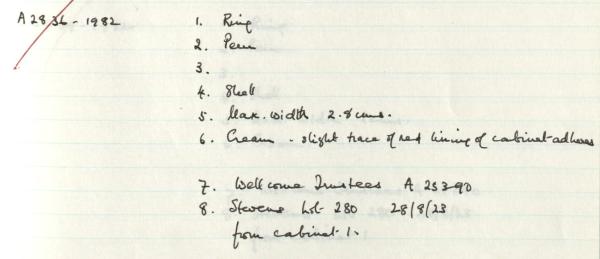 A 2836 - 1982 1. Ring
2. Peru
3.
4. Shell
5. Max. width 2.8 cms.
6. Cream - slight trace of red lining of cabinet adheres
7. Wellcome Trustees A 25390
8. Stevens Lot 280 28/8/23
from cabinet 1.